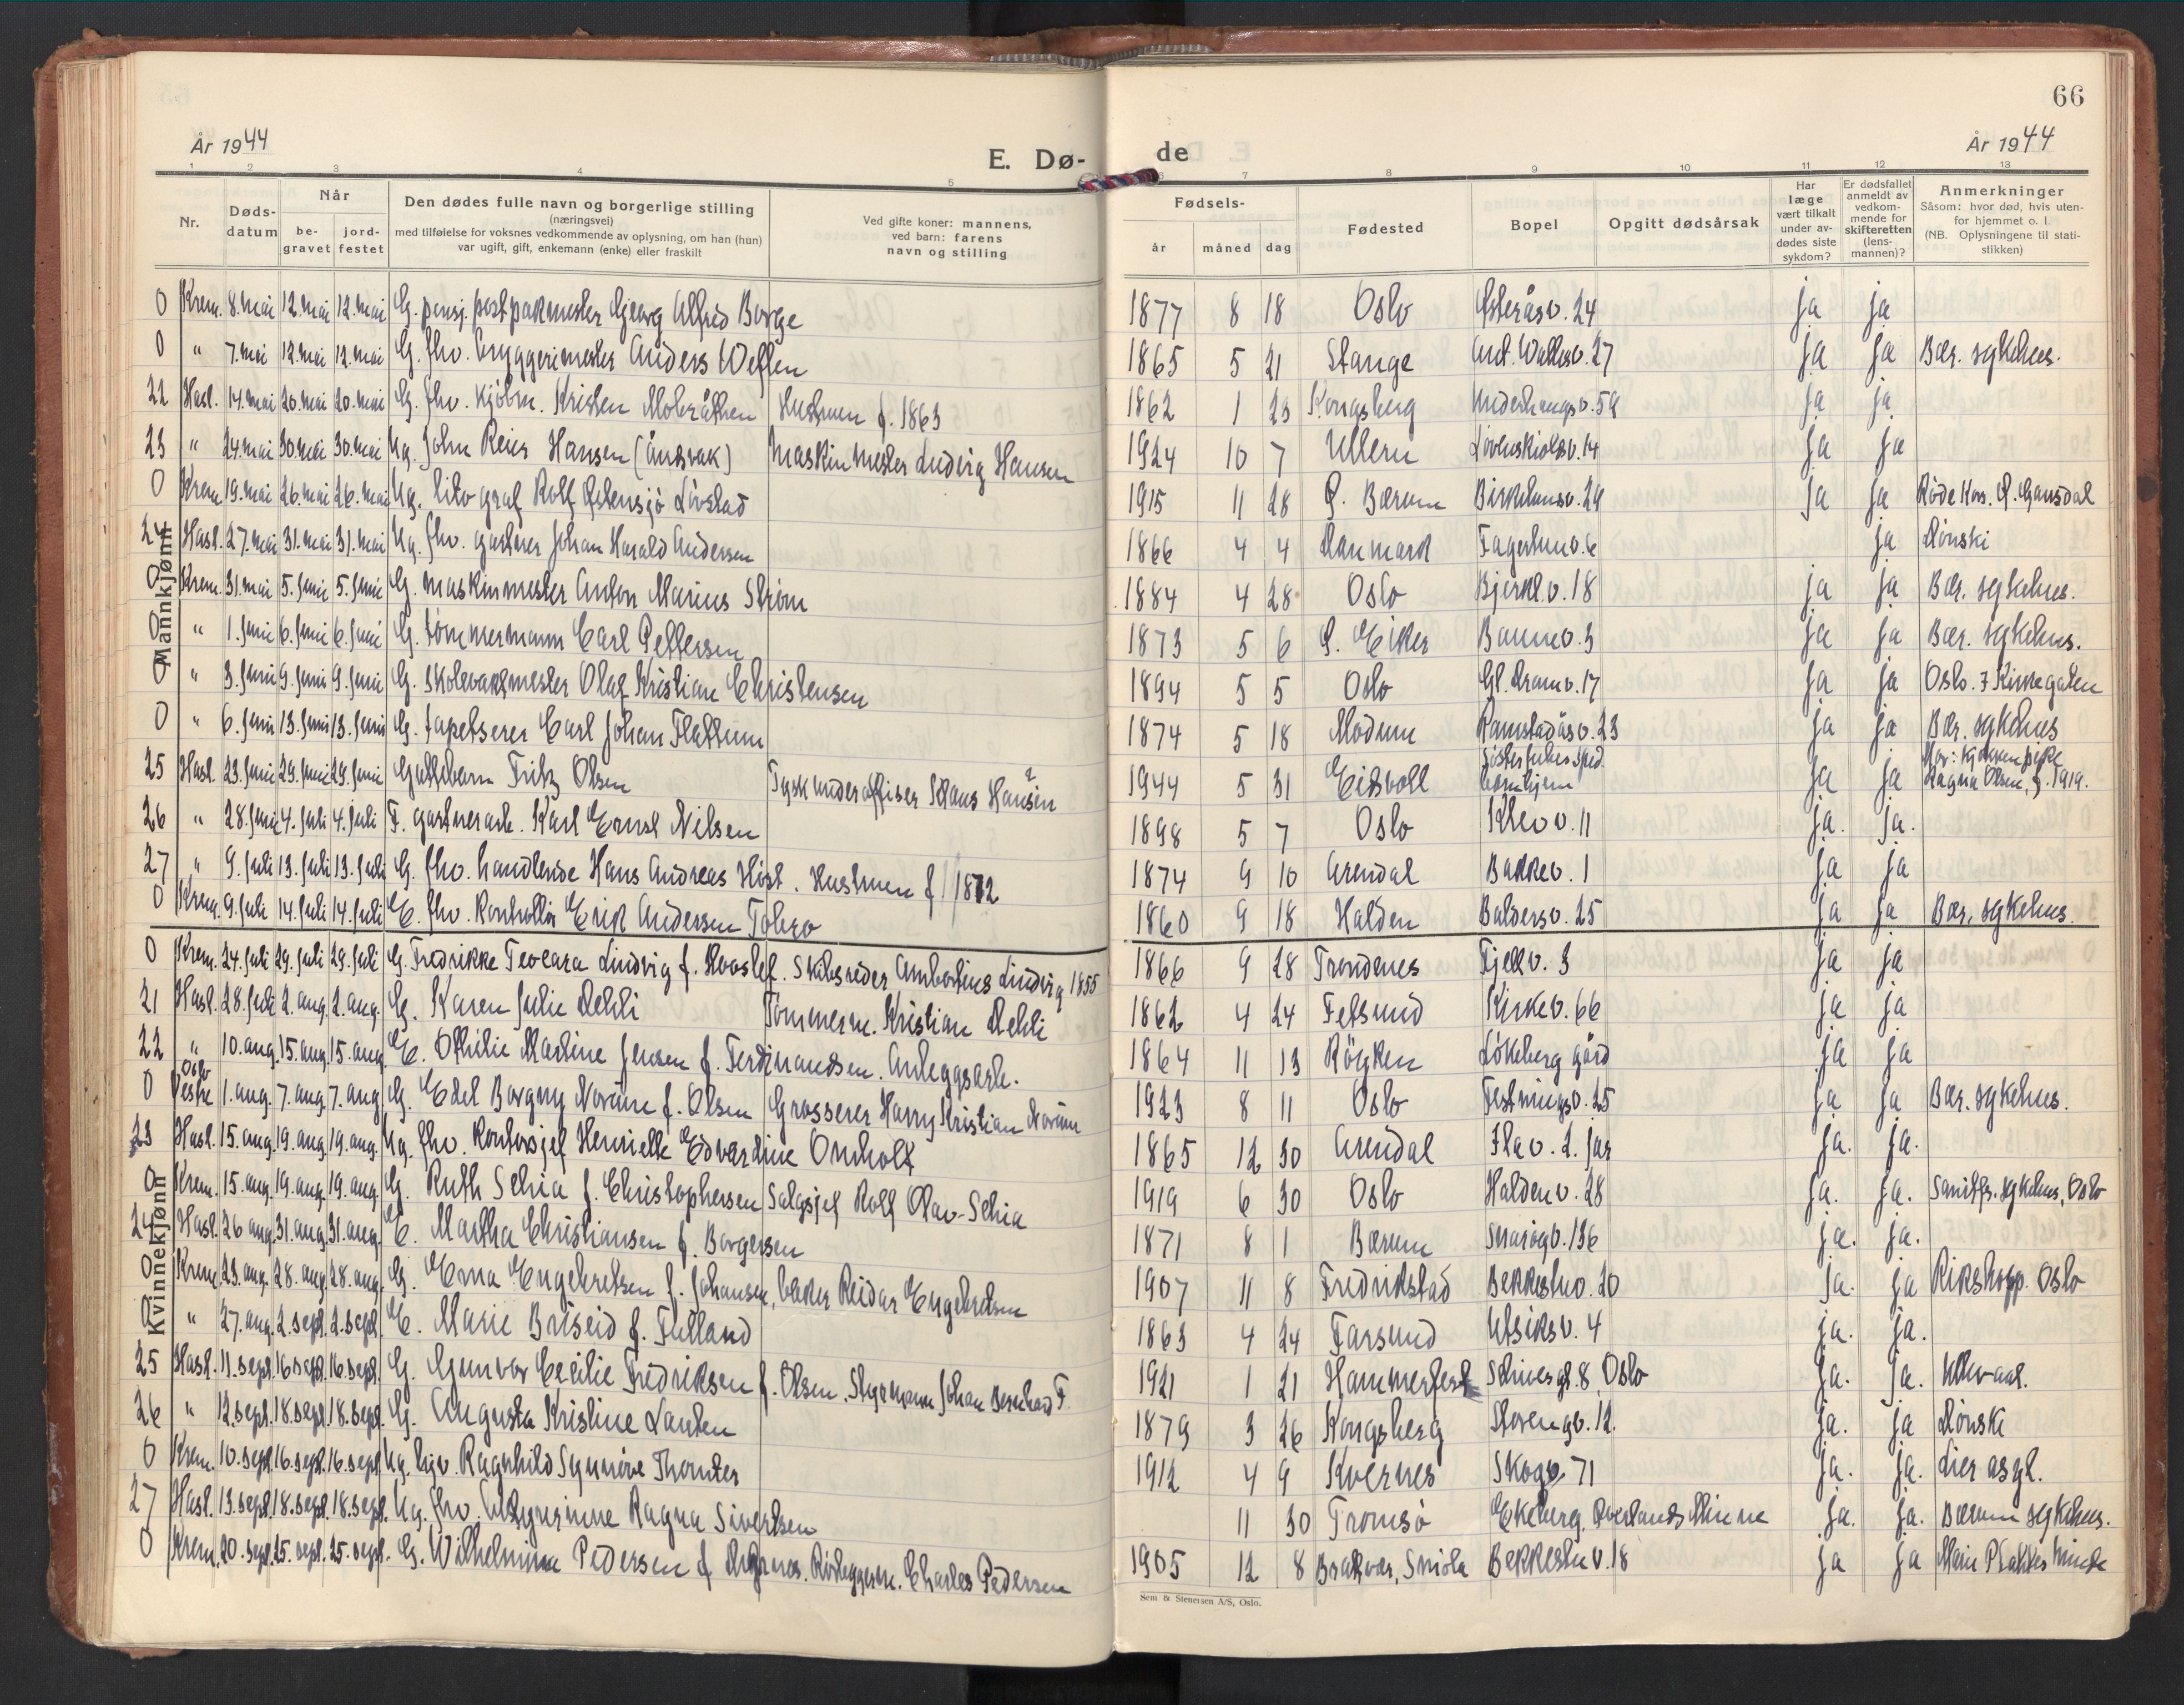 66
År 1944
E. Dø-
de
År 1944
1 2 3 4 5
6 7 8 9 10 11 12 13
Nr.
Dødsdatum
Når
begravet
jordfestet
Den dødes fulle navn og borgerlige stilling
(næringsvei)
med tilføielse for voksnes vedkommende av oplysning, om han (hun)
var ugift, gift, enkemann (enke) eller fraskilt
Ved gifte koner: mannens,
ved barn: farens
navn og stilling
Fødsels-
år
måned
dag
Fødested
Bopel
Opgitt dødsårsak
Har
læge
vært tilkalt
under av-
dødes siste
sykdom?
Er dødsfallet
anmeldt av
vedkom-
mende for
skifteretten
(lens-
mannen)?
Anmerkninger
Såsom: hvor død, hvis uten-
for hjemmet o. l.
(NB. Oplysningene til stati-
stikken)
Mannkjønn
0 Krem. 8. mai 12. mai 12. mai G. pensj. postpakmester Georg Alfred Borge 1877 8 18 Oslo Østeråsv. 24 ja ja
0 " 7. mai 12. mai 12. mai G. fhv. bryggerimester Anders Wefler 1865 5 21 Stange Ant. Wallesv. 27 ja ja Bær. sykehus.
22 Hasl. 14. mai 20. mai 20. mai G. fhv. kjøbm. Kristen Mobråthen Hustruen f. 1863 1862 1 23 Kongsberg 59 ja ja
23 " 24. mai 30. mai 30. mai Ug. John Reier Hansen (åndsvak) Maskinmester Ludvig Hansen 1924 10 7 Ullern Løvenskioldsv. 14 ja ja
0 Krem. 19. mai 26. mai 26. mai Ug. litograf Rolf Østensjø Livstad 1915 11 28 Ø. Bærum Birkelunsv. 29 ja ja Røde Kors. Ø. Gausdal
24 Hasl. 27. mai 31. mai 31. mai Ug. fhv. gartner Johan Harald Andersen 1866 4 4 Danmark Fagerlunv. 6 ja Dønski
0 Krem. 31. mai 5. juni 5. juni G. maskinmester Anton Marius Strøm 1884 4 28 Oslo Bjerkl.v. 18 ja ja Bær. sykehus.
0 " 1. juni 6. juni 6. juni G. tømmermann Carl Pettersen 1873 5 6 Ø. Eiker Baunev. 3 ja ja Bær. sykehus.
0 " 3. juni 9. juni 9. juni G. skolevaktmester Olaf Kristian Christensen 1894 5 5 Oslo Gl. Dramv. 17 ja ja Oslo. 7 Kirkegaten
0 " 6. juni 13. juni 13. juni G. tapetserer Carl Johan Flattum 1874 5 18 Modum Ramstadåsv. 23 ja ja Bær. sykehus
25 Hasl. 23. juni 29. juni 29. juni Guttebarn Fritz Olsen Tysk underoffiser Klaus Hansen ? 1944 5 31 Eidsvoll ja ja Mor: kjøkkenpike Ragna Olsen, f. 1919.
26 " 28. juni 4. juli 4. juli F. gartnerarb. Karl Ernst Nilsen 1898 5 7 Oslo Klevv. 11 ja. ja.
27 " 9. juli 13. juli 13. juli G. fhv. handlende Hans Andreas Høst. Hustruen f. 1872 1874 9 10 Arendal Bakkev. 1 ja ja
0 Krem. 9. juli 14. juli 14. juli E. fhv. kontrollør Erik Andersen Tobro 1860 9 18 Halden Baldersv. 25 ja ja Bær. sykehus.
Kvinnekjønn
0 Krem. 24. juli 29. juli 29. juli G. Fredrikke Teocara Lindvig f. Skibsreder Ambortius Lindvig 1855 1866 9 28 Trondenes Fjellv. 3 ja ja
21 Hasl. 28. juli 2. aug. 2. aug. G. Karen Julie Dehli Tømmerm. Kristian Dehli 1862 4 24 Fetsund Kirkev. 66 ja ja
22 " 10. aug. 15. aug. 15. aug. E. Othilie Martine Jensen f. Ferdinandsen. Anleggsarb. 1864 11 13 Røyken Løkeberg gård ja ja
0 Oslo Vestre 1. aug. 7. aug. 7. aug. G. Edel Borgny Norum f. Olsen Grosserer Harry Kristian Norum 1923 8 11 Oslo Festningsv. 25 ja ja Bær. sykehus.
23 Hasl. 15. aug. 19. aug. 19. aug. Ug. fhv. kontorsjef Henriette Edvardine Omholt 1865 12 30 Arendal Ilav. 2. Jar ja. ja.
0 Krem. 15. aug. 19. aug. 19. aug. G. Ruth Schia f. Christophersen Salgsjef Rolf Olav Schia 1919 6 30 Oslo Haldenv. 28 ja. ja. Sanitfr. sykehus, Oslo
24 Hasl. 26 aug. 31. aug. 31. aug. E. Martha Christiansen f. Borgersen 1871 8 1 Bærum Snarøyv. 136 ja. ja.
0 Krem. 23. aug. 28. aug. 28. aug. G. Erna Engebretsen f. Johansen, baker Reidar Engebretsen 1907 11 8 Fredrikstad Bekkestuv. 20 ja. ja Rikshosp. Oslo
0 " 27. aug. 2. sept. 2. sept. E. Marie Briseid f. Fulland 1863 4 24 Farsund Utsiktsv. 4 ja. ja.
25 Hasl. 11. sept. 16 sept. 16 sept. G. Gunvor Cecilie Fredriksen f. Olsen. Styrmann Johan Bernhard F. 1921 1 21 Hammerfest Schives gt. 8, Oslo ja. ja. Ullevaal.
26 " 12. sept. 18. sept. 18. sept. G. Augusta Kristine Lauten 1879 3 26 Kongsberg Storengv. 12. ja. ja Dønski
0 Krem. 10. sept. 16. sept. 16. sept. Ug. Ragnhild Synnøve Thomter 1912 4 9 Kvernes Skogv. 71 ja. ja. Lier asyl.
27 Hasl. 13. sept. 18. sept. 18. sept. Ug. fhv. Ragna Sivertsen 11 30 Tromsø Ekeberg, Øverlands Minne ja. ja. Bærum sykehus.
0 Krem. 20. sept. 25. sept. 25. sept. G. Wilhelmine Pedersen f. Charles Pedersen 1905 12 8 Smøla Bekkestuv. 18 ja ja Marie Plahtes Minde
Sem & Stenersen A/S, Oslo.